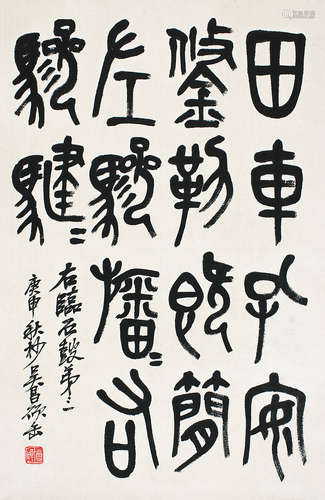 田車孔安
鋚勒既簡
左驂旛〻右
驂騝〻
右臨石鼓弟二
庚申秋杪吳昌碩